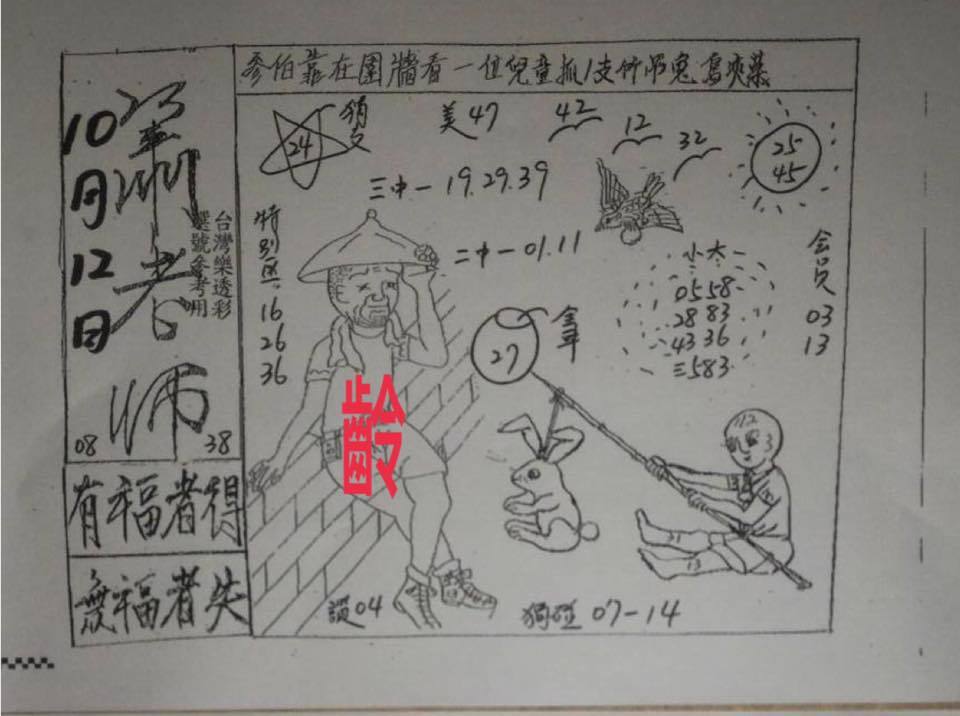 10月12日
蕭老師
台灣樂透彩
選號參考用
08 38
有福者得
無福者失
麥伯靠在圍牆看一位兒童抓1支竹吊兔鳥夾葉
24
美47
42
12
32
25
45
三中一 19.29.39
二中一 01.11
特別区
16
26
36
小大一
05 58
28 83
43 36
三583
会员
03
13
27
全年
齡
12
3
13
讚04
獨碰 07-14